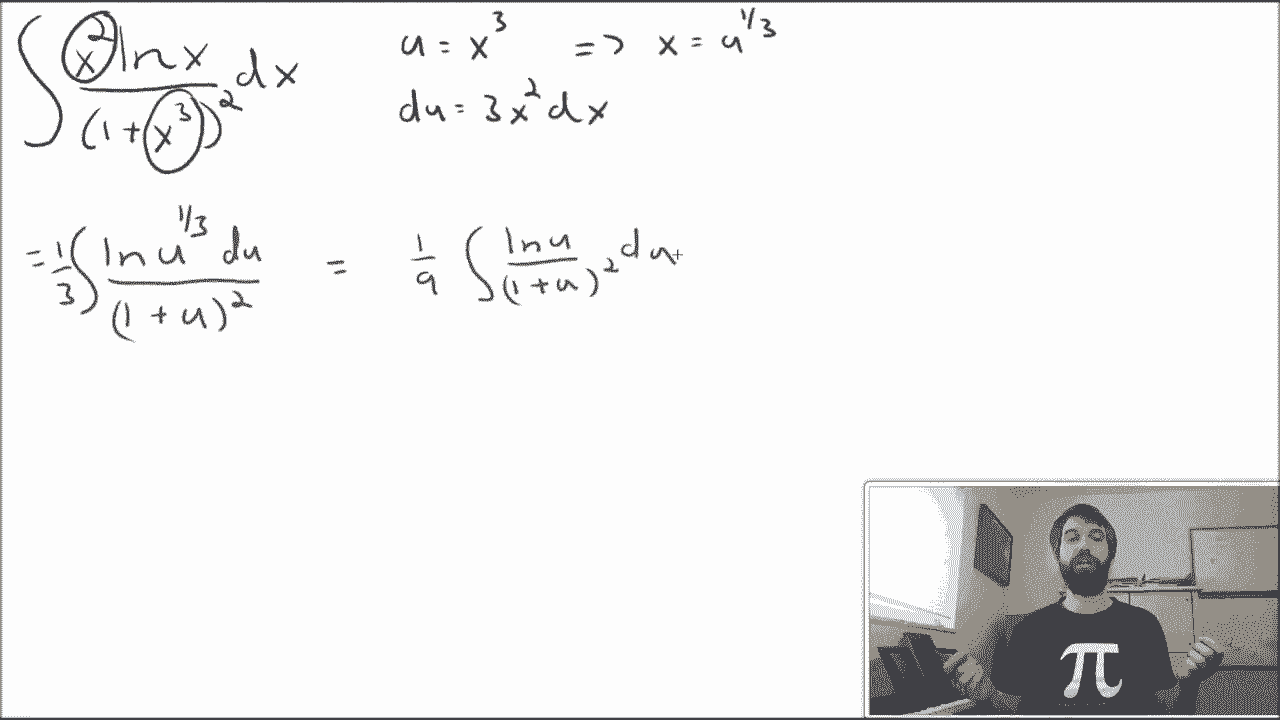 ∫ x² ln x / (1 + x³)² dx    u = x³ => x = u^1/3
du = 3x² dx
= 1/3 ∫ ln u^1/3 du / (1 + u)² = 1/9 ∫ ln u / (1 + u)² du
π